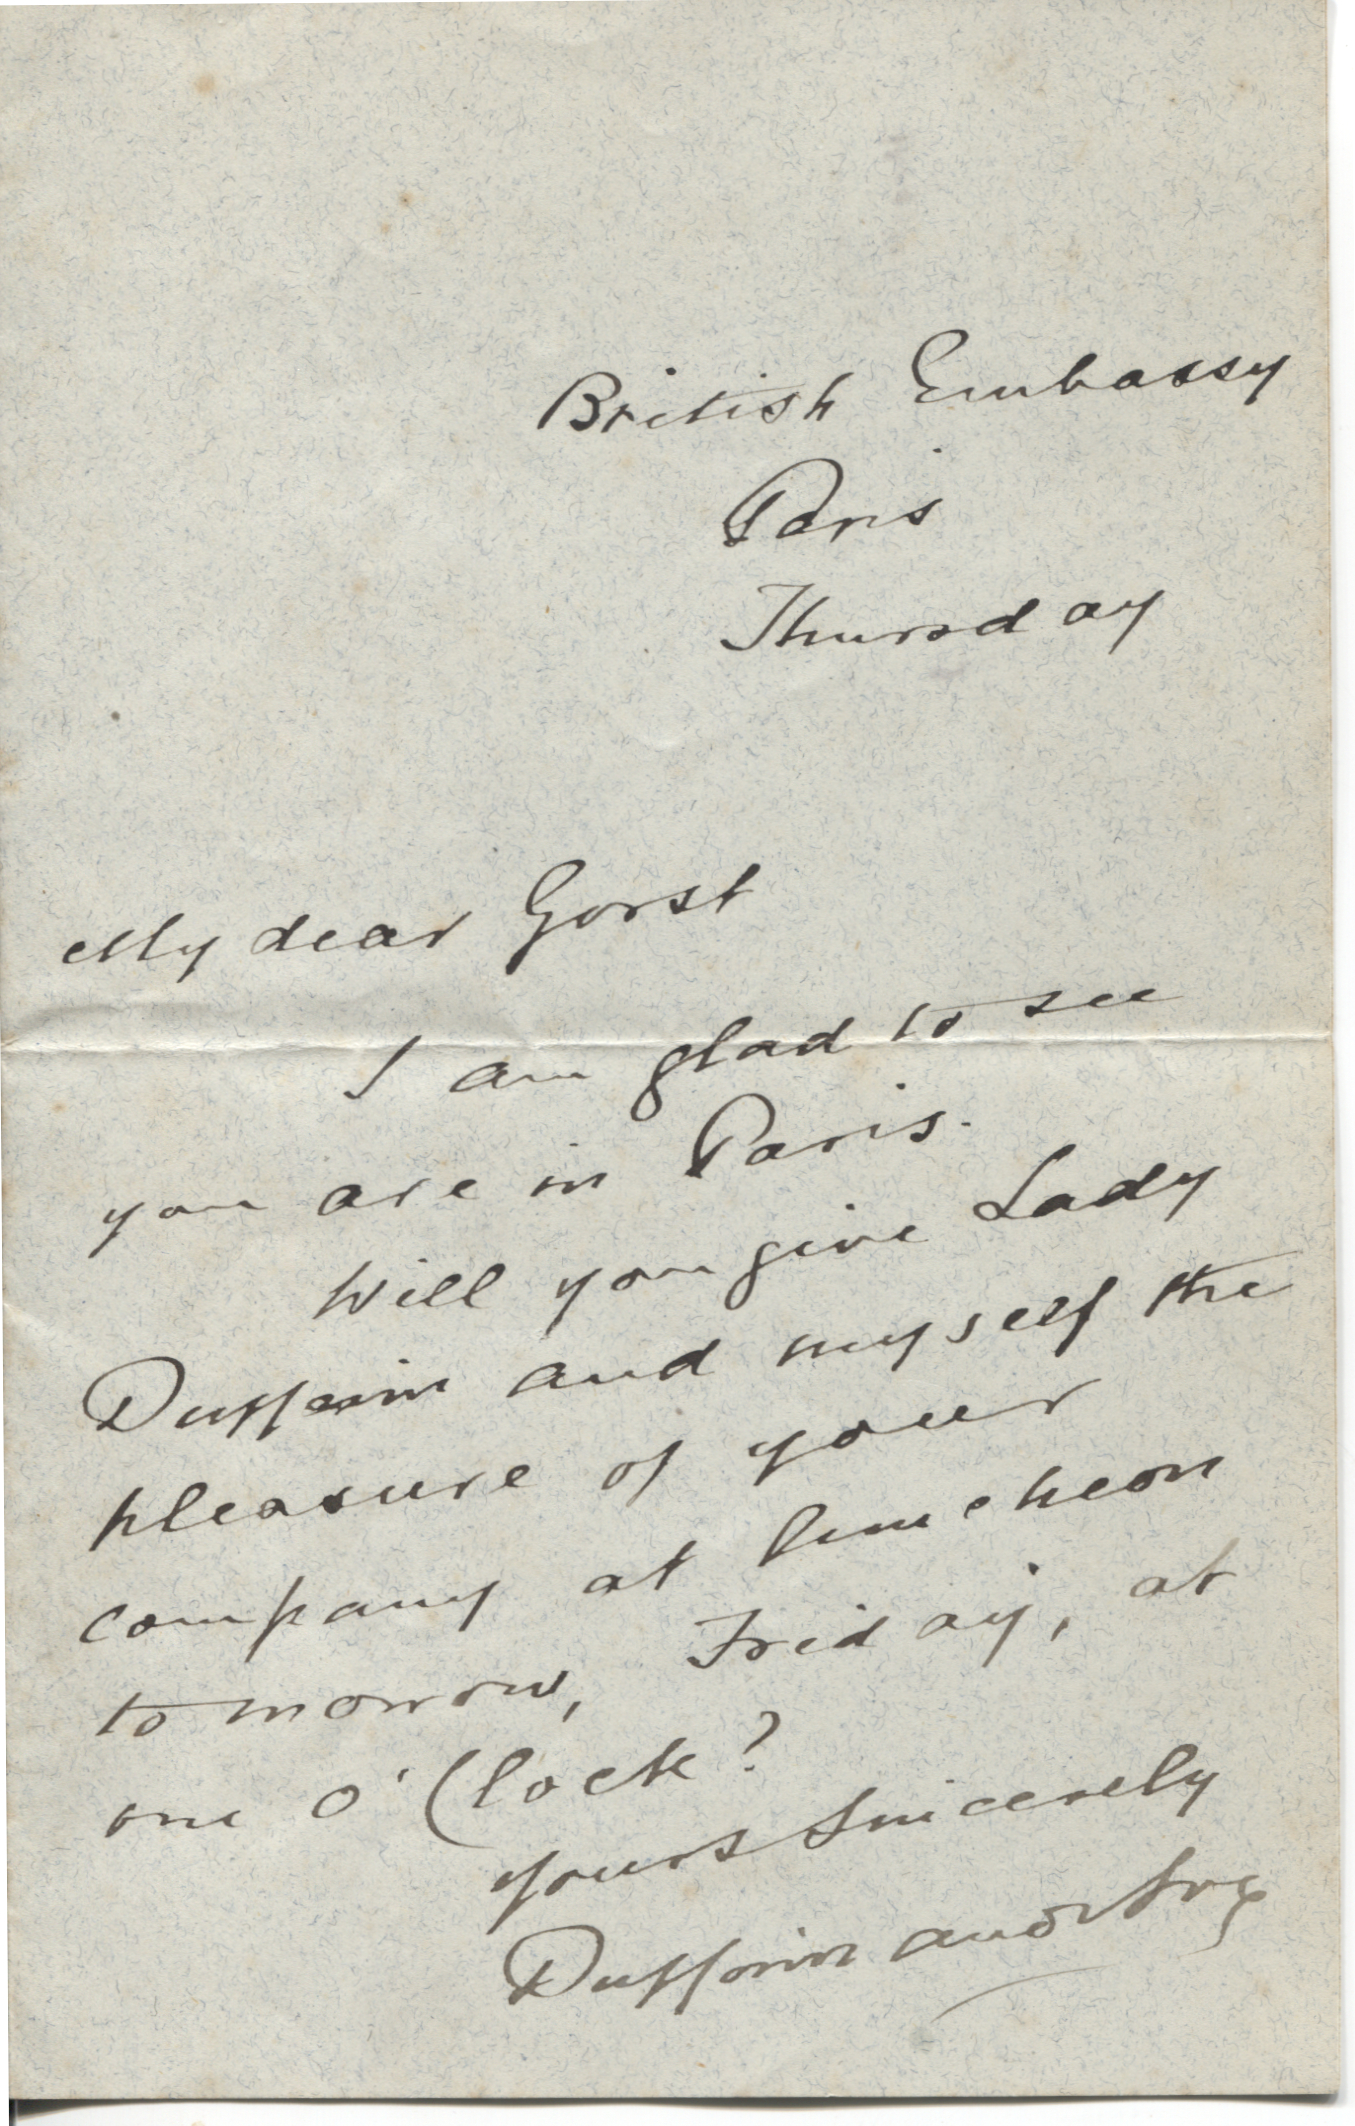 British Embassy
Paris
Thursday
My dear Gorst
I am glad to see
you are in Paris.
Will you give Lady
Dufferin and myself the
pleasure of your
company at luncheon
tomorrow, Friday, at
one o'Clock?
yours sincerely
Dufferin and Ava